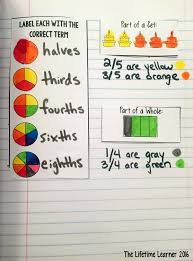 LABEL EACH WITH THE
CORRECT TERM
halves
thirds
fourths
sixths
eighths
Part of a Set:
2/5 are yellow
3/5 are orange
Part of a Whole:
1/4 are gray
3/4 are green
The Lifetime Learner 2016